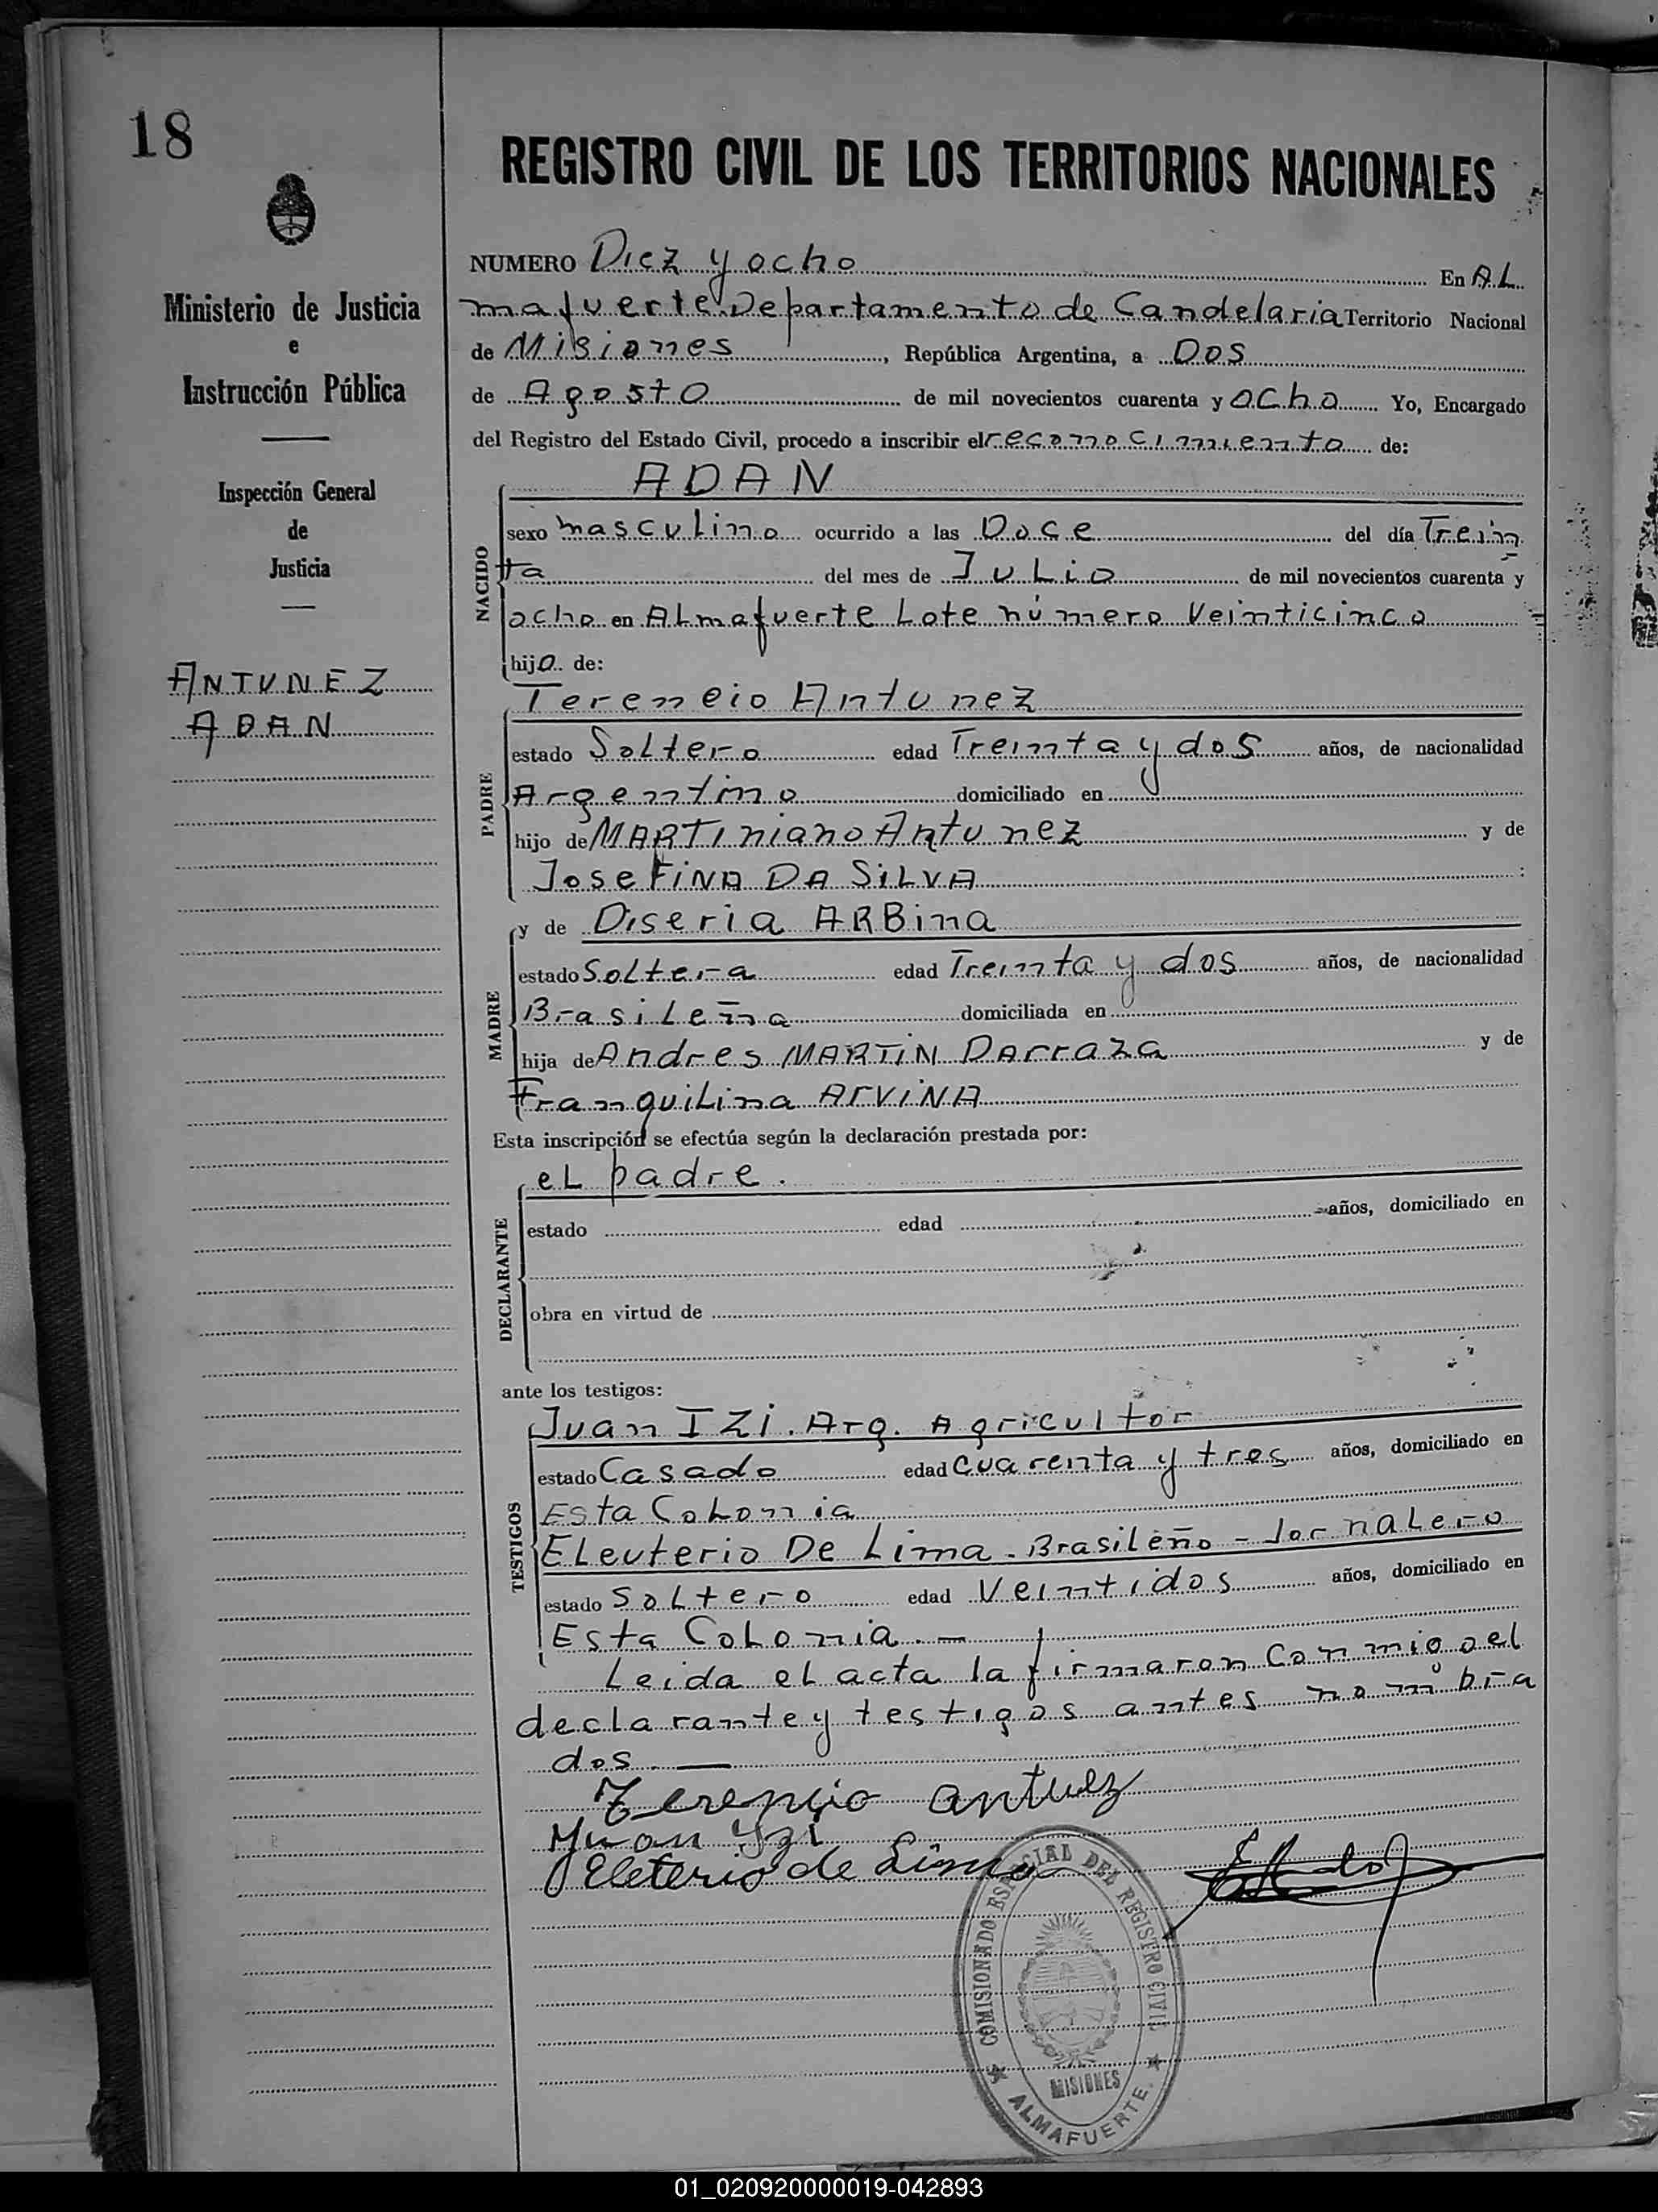 18
REGISTRO CIVIL DE LOS TERRITORIOS NACIONALES
Ministerio de Justicia
e
Instrucción Pública
Inspección General
de
Justicia
ANTUNEZ
ADAN
NUMERO Diez y ocho En AL
mafuerte Departamento de Candelaria Territorio Nacional
de Misiones, República Argentina, a Dos
de Agosto de mil novecientos cuarenta y ocho Yo, Encargado
del Registro del Estado Civil, procedo a inscribir el reconocimiento de:
NACIDO
ADAN
sexo masculino ocurrido a las Doce del día Trein
ta del mes de Julio de mil novecientos cuarenta y
ocho en Almafuerte Lote número Veinticinco
hijo de:
PADRE
Terencio Antunez
estado Soltero edad Treinta y dos años, de nacionalidad
Argentino domiciliado en
hijo de MARTiniano Antunez y de
Josefina DA SiLVA :
MADRE
y de Diseria ARBina
estado Soltera edad Treinta y dos años, de nacionalidad
Brasileña domiciliada en
hija de Andres MARTiN Darraza y de
Franquilina ArViNA
Esta inscripción se efectúa según la declaración prestada por:
DECLARANTE
el padre.
estado edad años, domiciliado en
obra en virtud de
ante los testigos:
TESTIGOS
Juan IZi. Arg. Agricultor
estado Casado edad cuarenta y tres años, domiciliado en
Esta Colonia
Eleuterio De Lima - Brasileño - Jornalero
estado Soltero edad Veintidos años, domiciliado en
Esta Colonia. —
Leida el acta la firmaron Conmigo el
declarante y testigos antes nombra
dos. —
Terencio antuez
Juan Yzi
Eleterio de Lima
COMISIONADO ESPECIAL DEL REGISTRO CIVIL
MISIONES
ALMAFUERTE
01_020920000019-042893